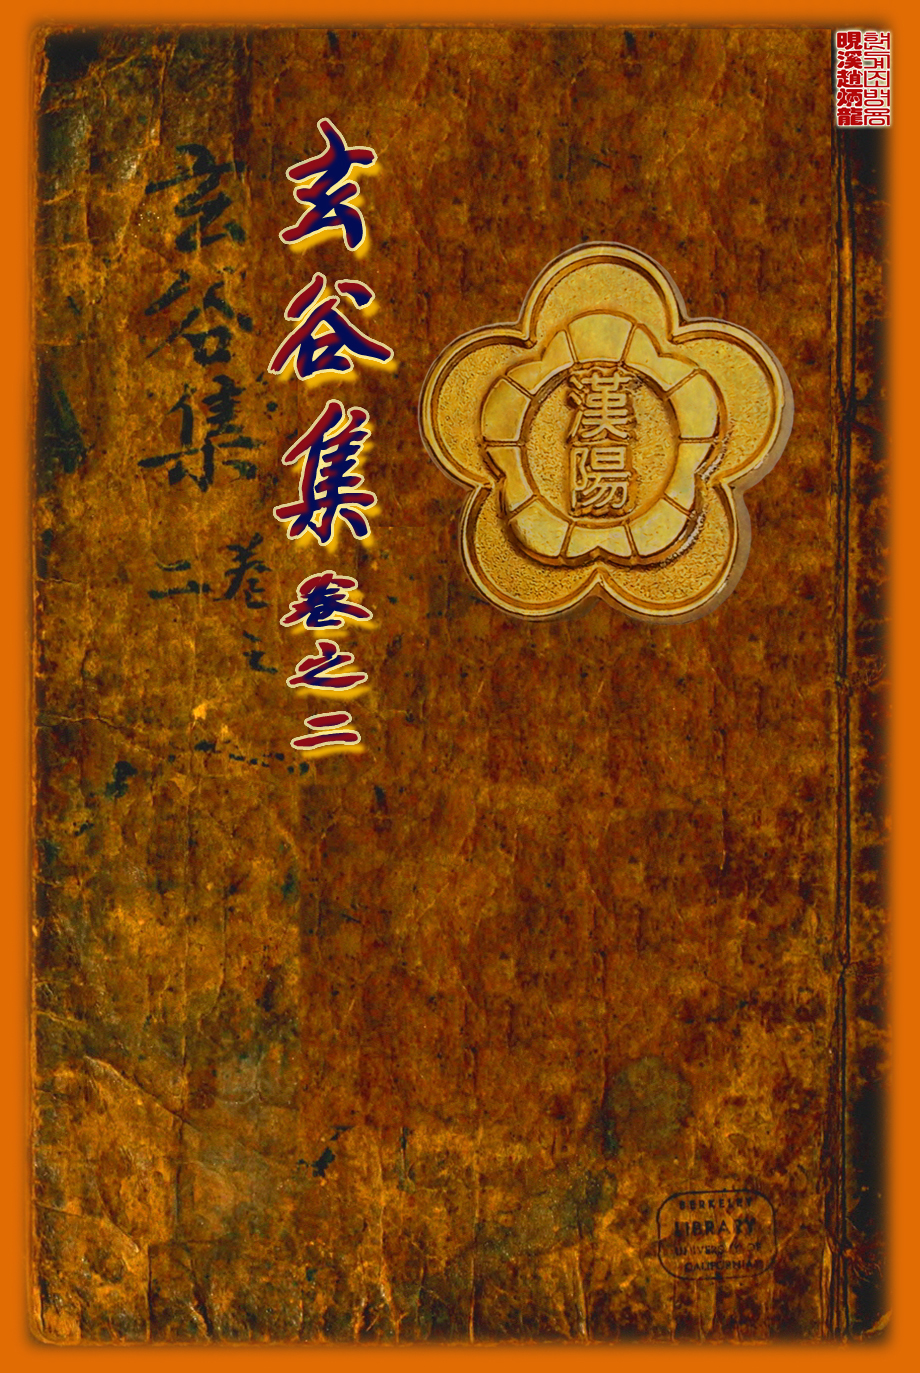 玄谷集 卷之二
玄谷集
卷之二
漢陽
晛溪趙炳龍
현계조병룡
BERKELEY
LIBRARY
UNIVERSITY OF
CALIFORNIA